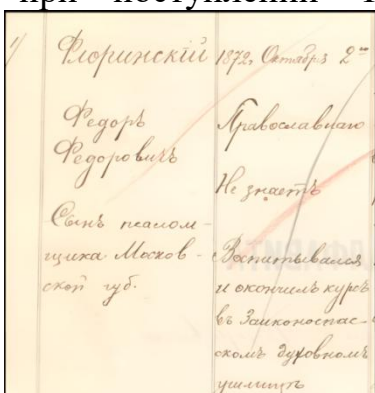 при поступлении
1/
Флоринскій
Федоръ
Федоровичъ
Сынъ псалом-
щика Москов-
ской губ.
1872, Октября 2го
Православнаго
Не знаетъ
Воспитывался
и окончилъ курсъ
въ Заиконоспас-
скомъ духовномъ
училищѣ